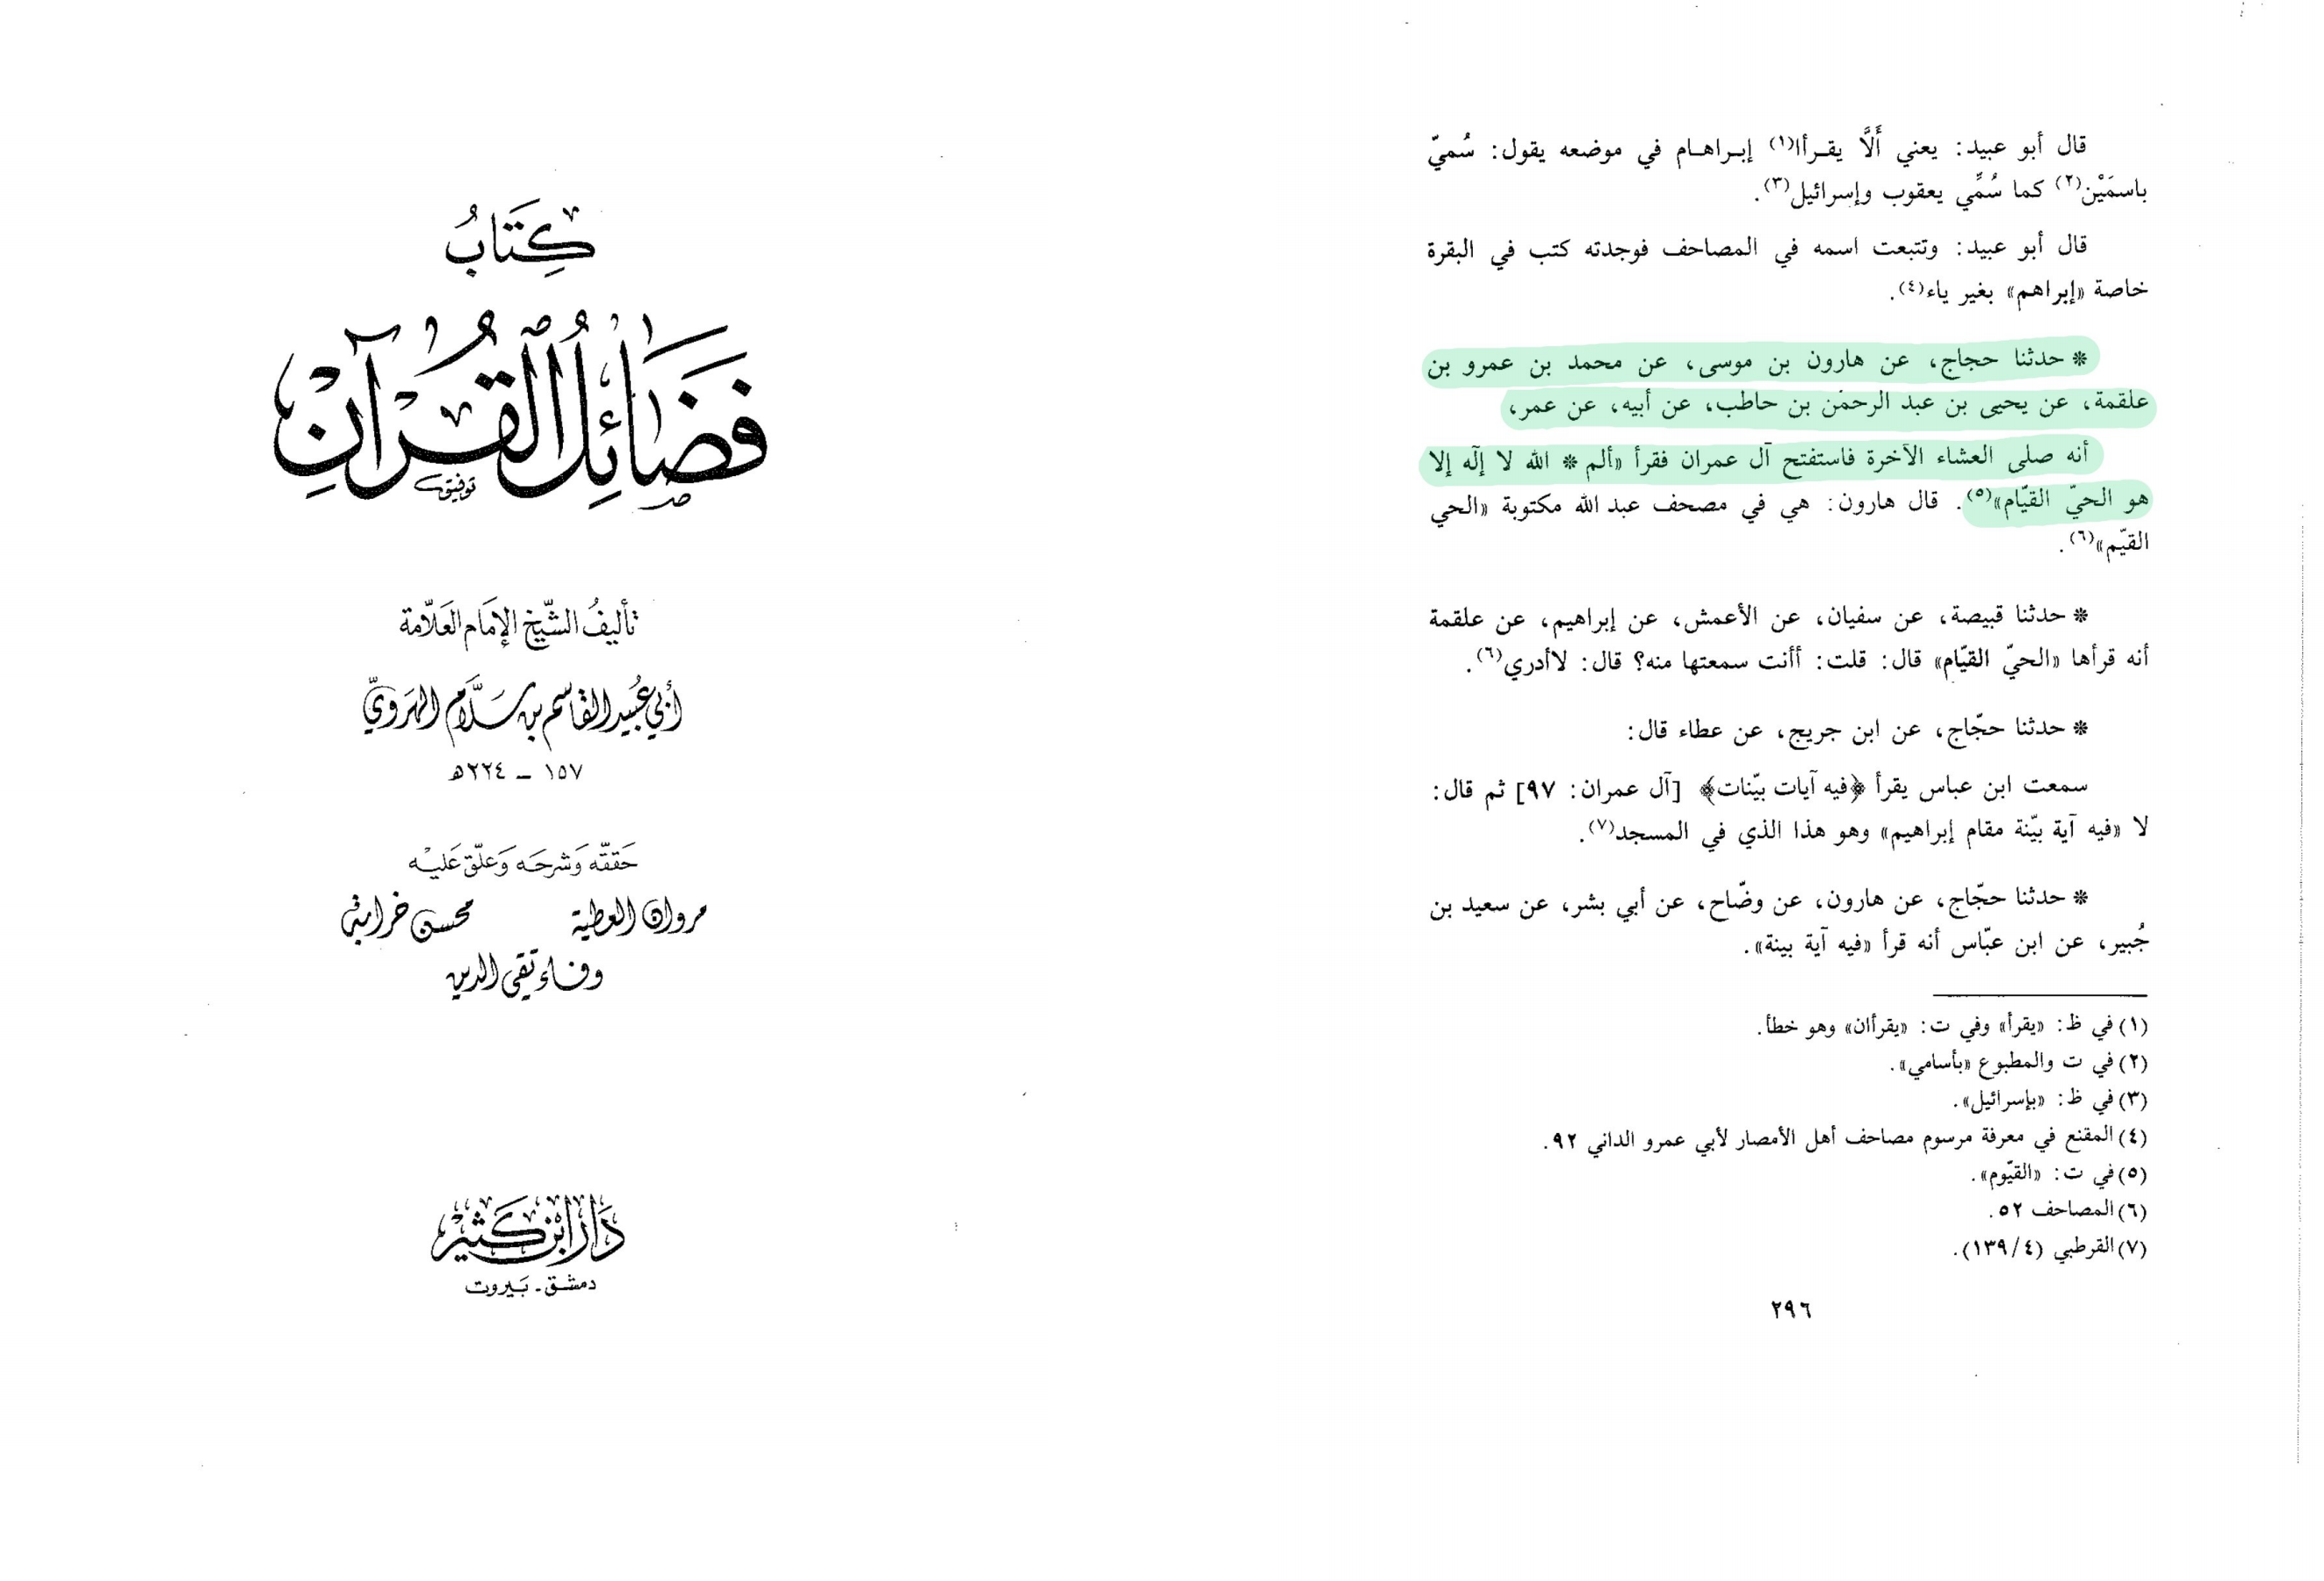 كِتَابُ
فَضَائِلُ الْقُرْآنِ
توفيق
تأليفُ الشّيخ الإمَام العَلاّمة
أبي عُبيد القاسم بن سَلاَّم الهَرَويّ
١٥٧ – ٢٢٤ه
حَققّه وَشرحَه وَعلّق عَليْه
مروان العطية محسن خرابة
وفاء تقي الدين
دَار ابْن كَثير
دمشق - بَيروت
قال أبو عبيد: يعني أَلَّا يقـرأا(١) إبـراهـام في موضعه يقول: سُميّ
باسمَيْن(٢) كما سُمِّي يعقوب وإسرائيل(٣).
قال أبو عبيد: وتتبعت اسمه في المصاحف فوجدته كتب في البقرة
خاصة «إبراهم» بغير ياء(٤).
* حدثنا حجاج، عن هارون بن موسى، عن محمد بن عمرو بن
علقمة، عن يحيى بن عبد الرحمٰن بن حاطب، عن أبيه، عن عمر،
أنه صلى العشاء الآخرة فاستفتح آل عمران فقرأ «ألم * الله لا إلٓه إلا
هو الحيّ القيّام»(٥). قال هارون: هي في مصحف عبد الله مكتوبة «الحي
القيّم»(٦).
* حدثنا قبيصة، عن سفيان، عن الأعمش، عن إبراهيم، عن علقمة
أنه قرأها «الحيّ القيّام» قال: قلت: أأنت سمعتها منه؟ قال: لاأدري(٦).
* حدثنا حجّاج، عن ابن جريج، عن عطاء قال:
سمعت ابن عباس يقرأ ﴿فيه آيات بيّنات﴾ [آل عمران: ٩٧] ثم قال:
لا «فيه آية بيّنة مقام إبراهيم» وهو هذا الذي في المسجد(٧).
* حدثنا حجّاج، عن هارون، عن وضّاح، عن أبي بشر، عن سعيد بن
جُبير، عن ابن عبّاس أنه قرأ «فيه آية بينة».
(١) في ظ: «يقرأ» وفي ت: «يقرأان» وهو خطأ.
(٢) في ت والمطبوع «بأسامي».
(٣) في ظ: «بإسرائيل».
(٤) المقنع في معرفة مرسوم مصاحف أهل الأمصار لأبي عمرو الداني ٩٢.
(٥) في ت: «القيّوم».
(٦) المصاحف ٥٢.
(٧) القرطبي (٤/ ١٣٩).
٢٩٦